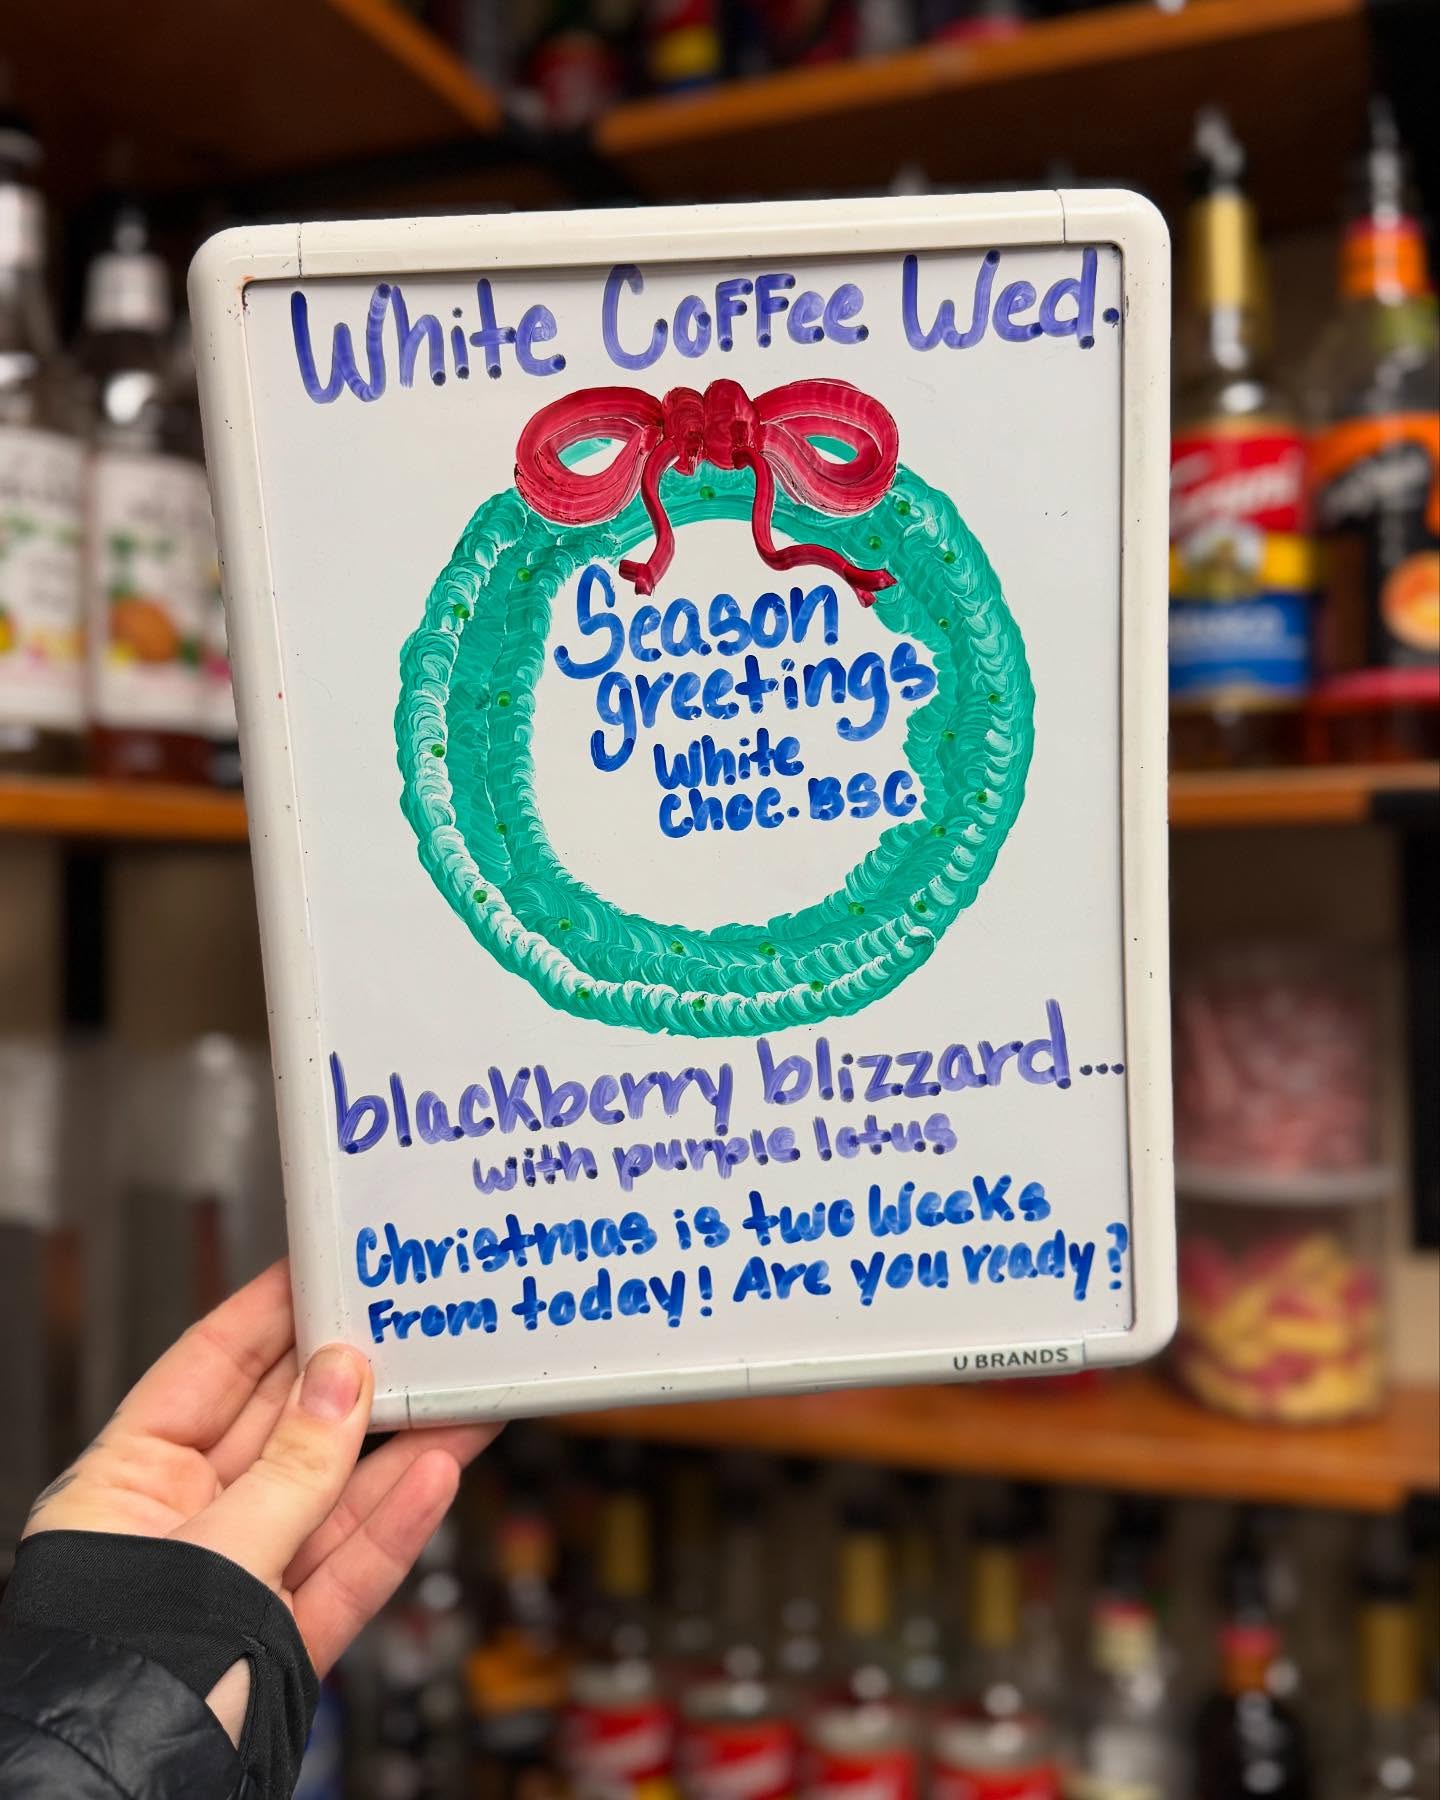 White Coffee Wed.
Season
greetings
White
choc. BSC
blackberry blizzard...
with purple lotus
Christmas is two Weeks
From today! Are you ready?
U BRANDS